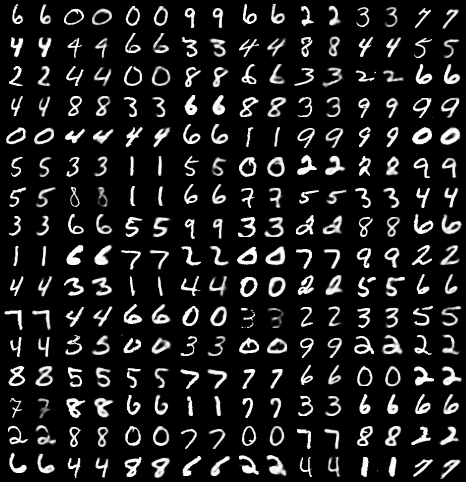 6 6 0 0 0 0 9 9 6 6 2 2 3 3 7 7
4 4 4 4 6 6 3 3 4 4 8 8 4 4 5 5
2 2 4 4 0 0 8 8 6 6 3 3 2 2 6 6
4 4 8 8 3 3 6 6 8 8 3 3 9 9 9 9
0 0 4 4 4 4 6 6 1 1 9 9 9 9 0 0
5 5 3 3 1 1 5 5 0 0 2 2 8 8 9 9
5 5 8 8 1 1 6 6 7 7 5 5 3 3 4 4
3 3 6 6 5 5 9 9 3 3 2 2 8 8 6 6
1 1 6 6 7 7 2 2 0 0 7 7 9 9 2 2
4 4 3 3 1 1 4 4 0 0 2 2 5 5 6 6
7 7 4 4 6 6 0 0 3 3 2 2 3 3 5 5
4 4 3 5 0 0 3 3 0 0 9 9 2 2 2 2
8 8 5 5 5 5 7 7 7 7 6 6 0 0 2 2
7 7 8 8 6 6 1 1 7 7 3 3 6 6 6 6
2 2 8 8 0 0 7 7 0 0 7 7 8 8 2 2
6 6 4 4 8 8 6 6 2 2 4 4 1 1 7 7